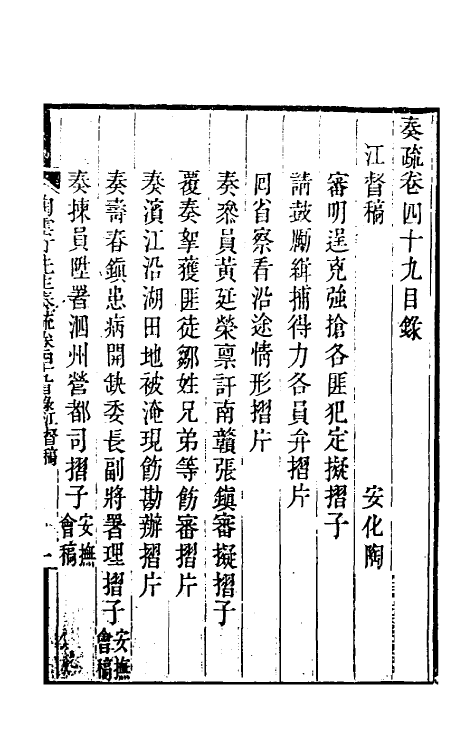 奏疏卷四十九目錄
江督稿　安化陶
審明逞兇強搶各匪犯定擬摺子
請鼓勵緝捕得力各員弁摺片
囘省察看沿途情形摺片
奏叅員黃延榮稟訐南贛張鎭審擬摺子
覆奏拏獲匪徒鄒姓兄弟等飭審摺片
奏濱江沿湖田地被淹現飭勘辦摺片
奏壽春鎭患病開缺委長副將署理摺子安撫會稿
奏揀員陞署泗州營都司摺子安撫會稿
陶雲汀先生奏疏卷四十九目錄江督稿　一